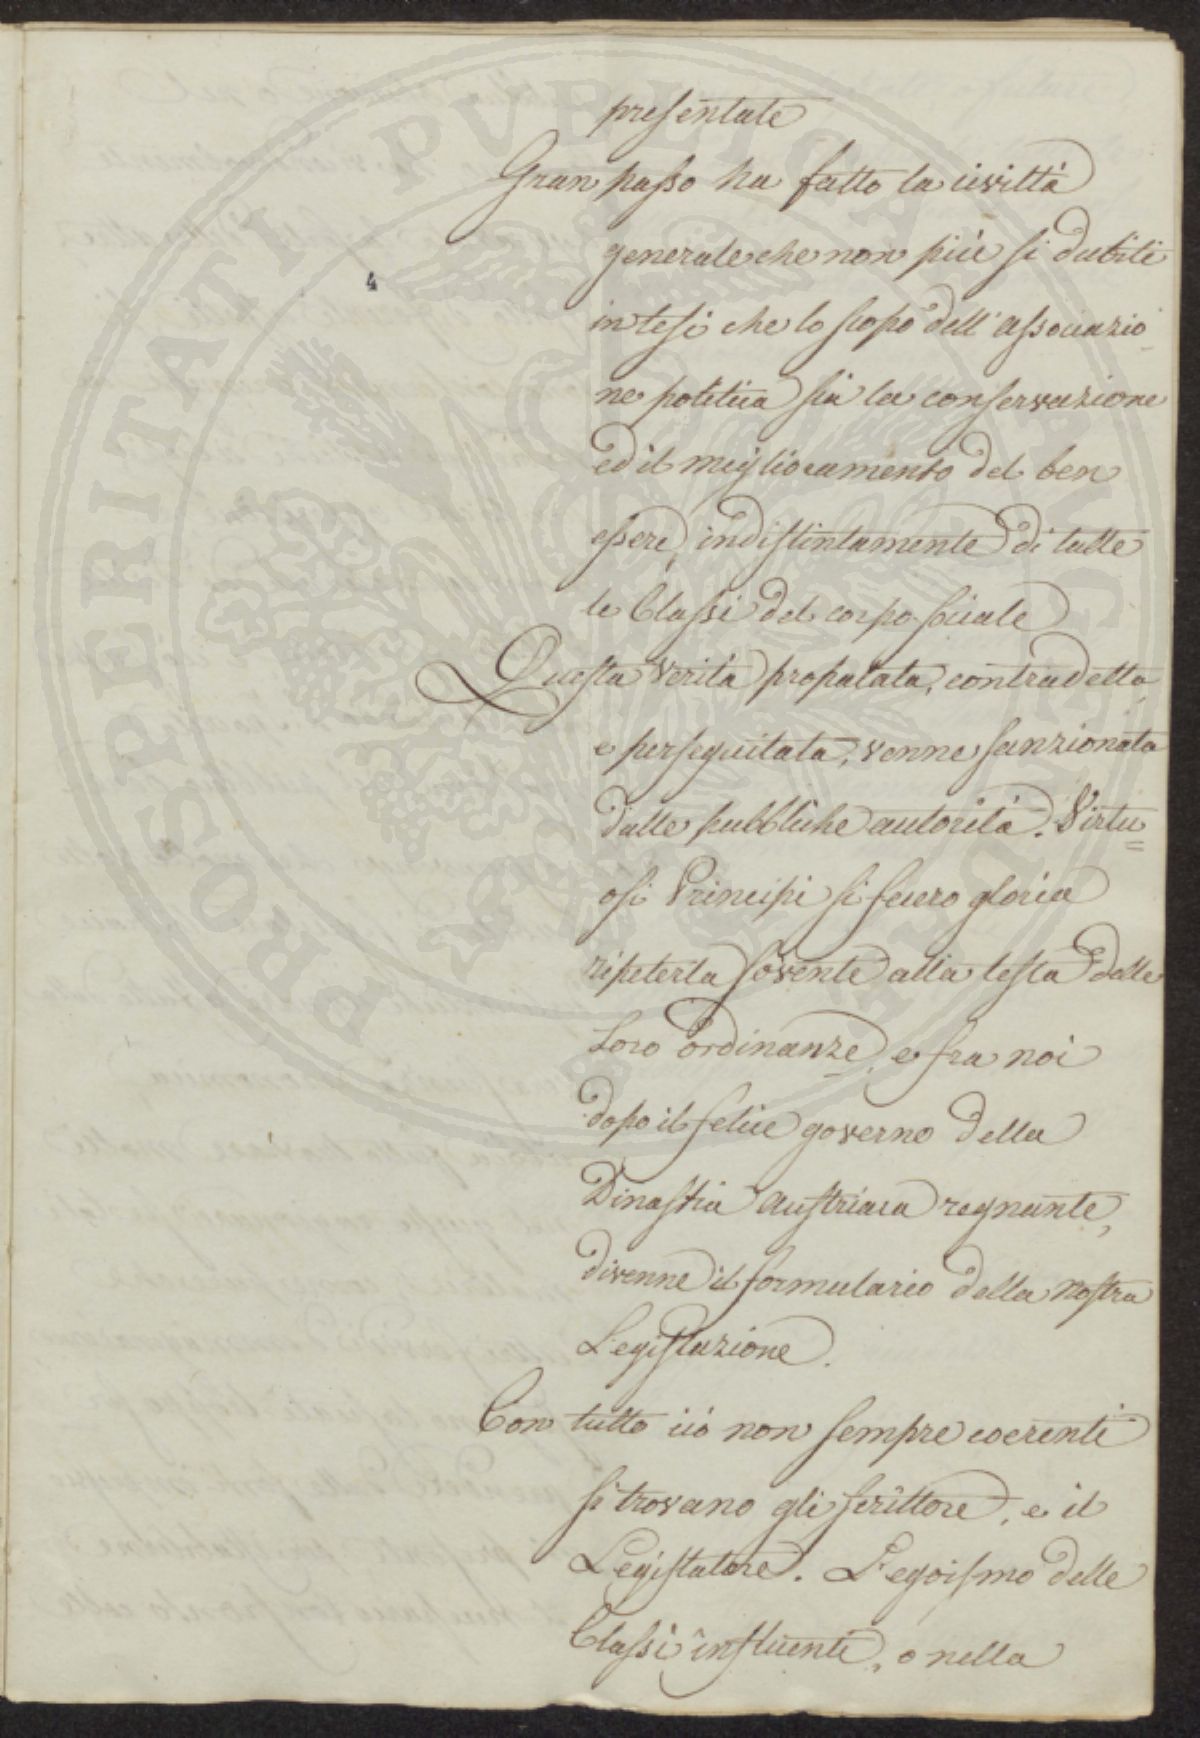 presentate
Gran passo ha fatto la civiltà
generale che non più si dubiti
in tesi che lo scopo dell'associazio
ne politica sia la conservazione
ed il miglioramento del ben
essere, indistintamente di tutte
le Classi del corpo sociale
4
Questa verità propalata, contradetta,
e perseguitata, venne sanzionata
dalle pubbliche autorità. Virtu=
osi Principi si fecero gloria
ripeterla sovente alla testa delle
Loro ordinanze, e fra noi
dopo il felice governo della
Dinastia Austriaca regnante,
divenne il formulario della nostra
Legislazione.
Con tutto ciò non sempre coerenti
si trovano gli scrittore, e il
Legislatore. L'egoismo delle
Classi influenti, o nella
PROSPERITATI PVBLICAE